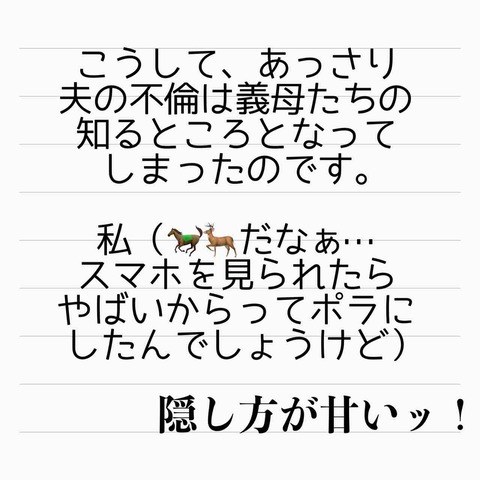 こうして、あっさり
夫の不倫は義母たちの
知るところとなって
しまったのです。
私（🐎🦌だなぁ…
スマホを見られたら
やばいからってポラに
したんでしょうけど）
隠し方が甘いッ！